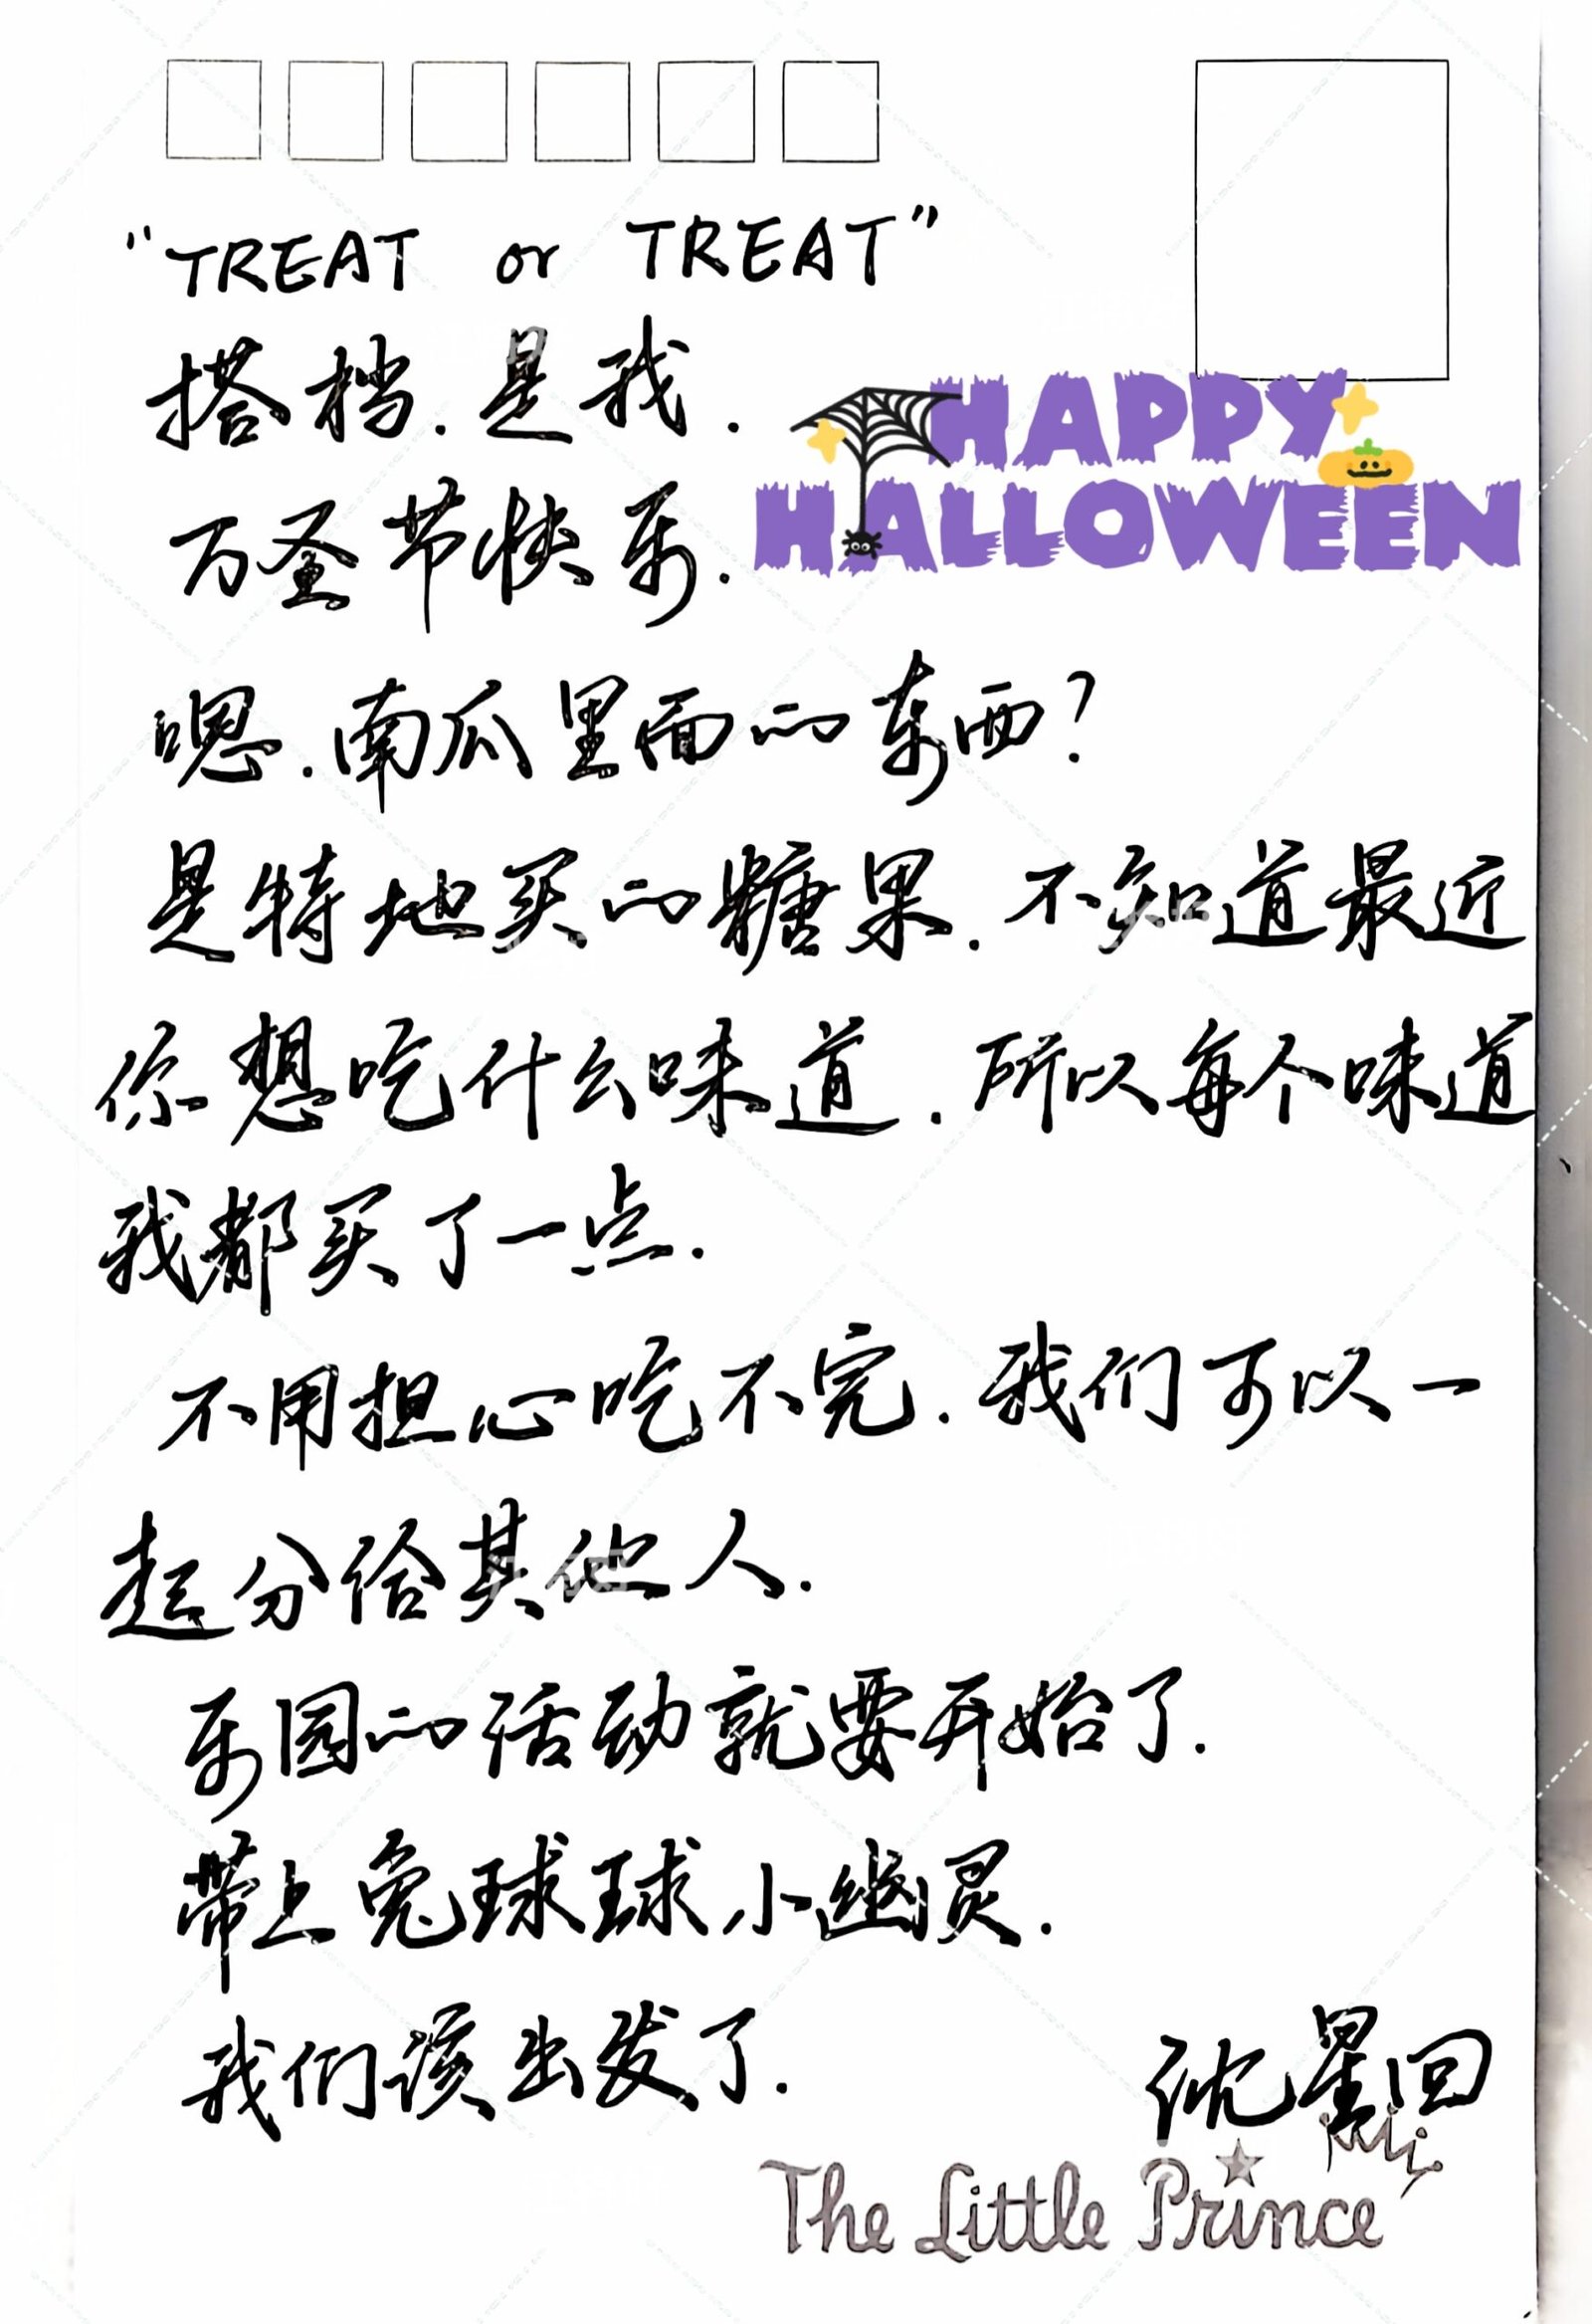 “TREAT or TREAT”
搭档.是我.
HAPPY
HALLOWEEN
万圣节快乐.
嗯.南瓜里面的东西?
是特地买的糖果.不知道最近
你想吃什么味道.所以每个味道
我都买了一点.
不用担心吃不完.我们可以一
起分给其他人.
乐园的活动就要开始了.
带上兔球球小幽灵.
我们该出发了.
沈星回
The Little Prince